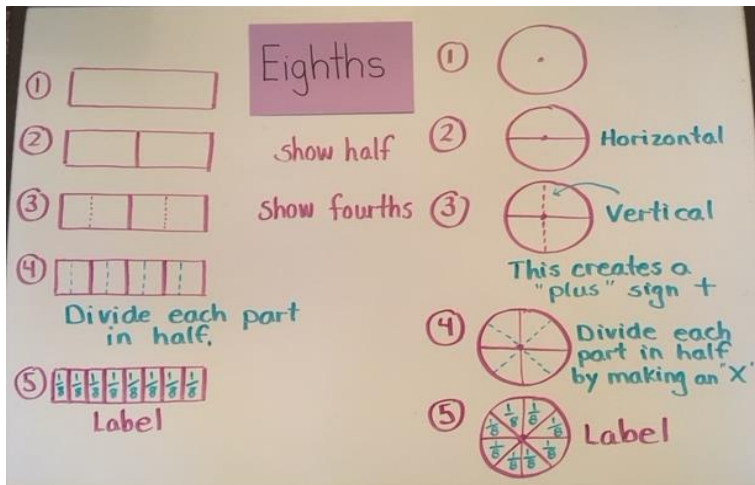 Eighths
①
②
show half
③
show fourths
④
Divide each part
in half.
⑤
1/8 1/8 1/8 1/8 1/8 1/8 1/8 1/8
Label
①
②
Horizontal
③
Vertical
This creates a
"plus" sign +
④
Divide each
part in half
by making an "X"
⑤
1/8 1/8 1/8 1/8 1/8 1/8 1/8 1/8
Label